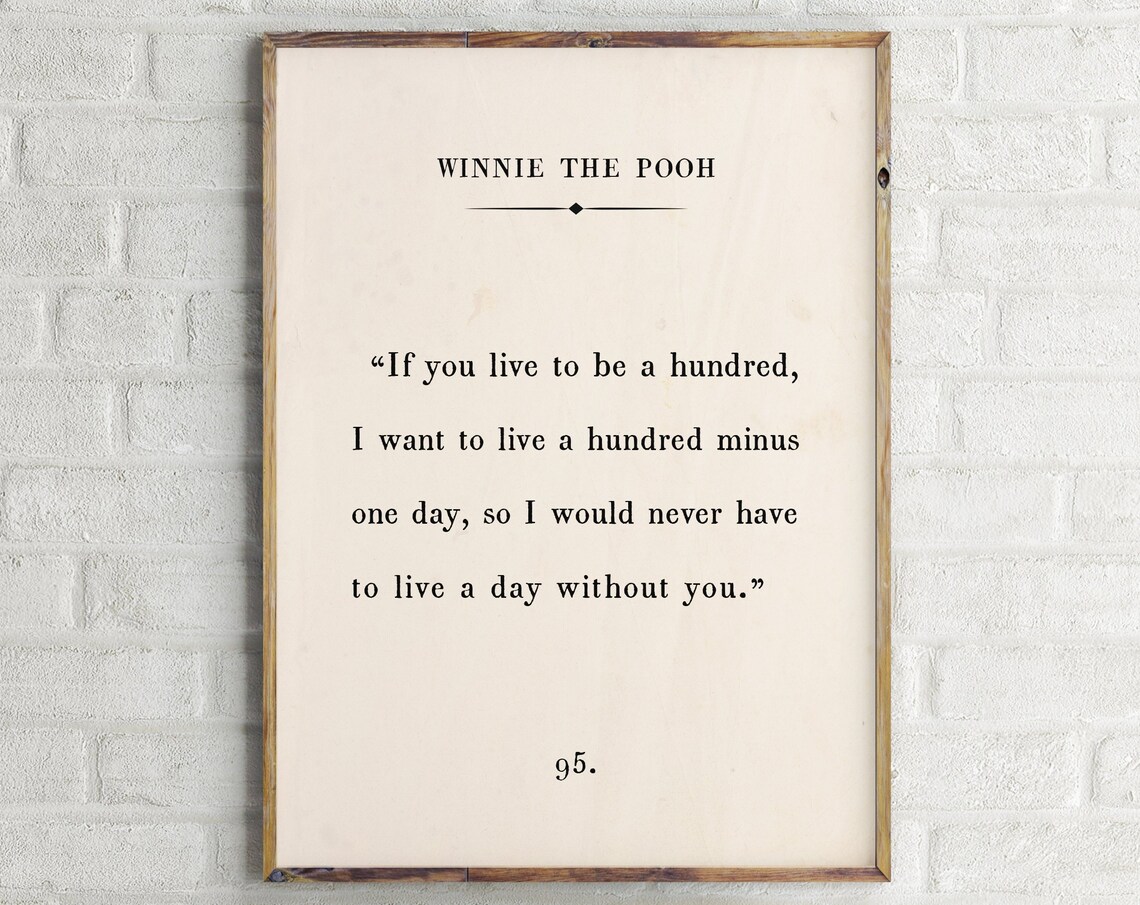 WINNIE THE POOH
“If you live to be a hundred,
I want to live a hundred minus
one day, so I would never have
to live a day without you.”
95.